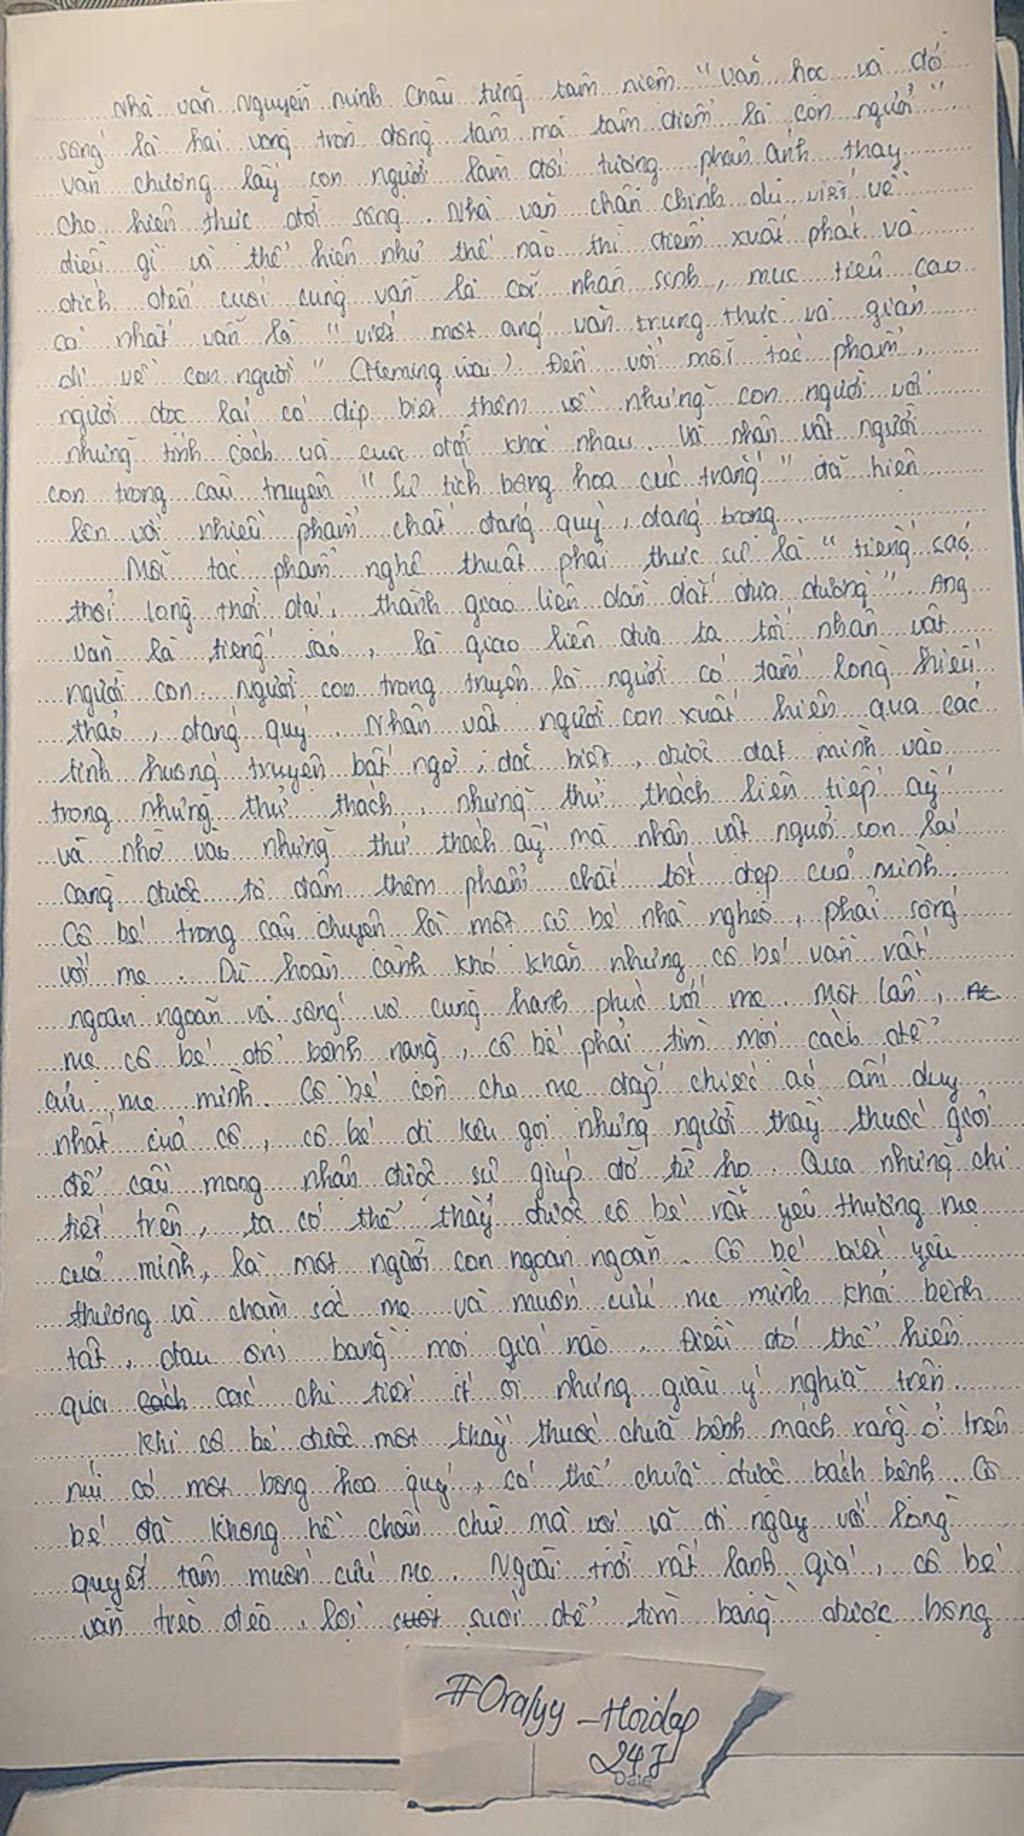 Nhà văn Nguyễn Minh Châu từng tâm niệm "văn học và đó
sống là hai vòng tròn đồng tâm mà tâm điểm là con người"
Văn chương lấy con người làm đối tượng phản ánh thay
cho hiện thực đời sống. Nhà văn chân chính dù viết về
điều gì và thể hiện như thế nào thì điểm xuất phát và
đích đến cuối cùng vẫn là cõi nhân sinh, mục tiêu cao
cả nhất vẫn là "viết một áng văn trung thực và giản
dị về con người" (Heming uây) Đến với mỗi tác phẩm,
người đọc lại có dịp biết thêm về những con người với
những tính cách và cuộc đời khác nhau. Và nhân vật người
con trong câu truyện "Sự tích bông hoa cúc trắng" đã hiện
lên với nhiều phẩm chất đáng quý, đáng trọng
Mỗi tác phẩm nghệ thuật phải thực sự là "tiếng sáo
thổi lòng thời đại, thành giao liên dẫn dắt đưa đường". Áng
văn là tiếng sáo, là giao liên đưa ta tới nhân vật
người con. Người con trong truyện là người có tấm lòng hiếu
thảo, đáng quý. Nhân vật người con xuất hiện qua các
tình huống truyện bất ngờ, đặc biệt, được đặt mình vào
trong những thử thách, những thử thách liên tiếp ấy
và nhờ vào những thử thách ấy mà nhân vật người con lại
càng được tô đậm thêm phẩm chất tốt đẹp của mình.
Cô bé trong câu chuyện là một cô bé nhà nghèo, phải sống
với mẹ. Dù hoàn cảnh khó khăn nhưng cô bé vẫn rất
ngoan ngoãn và sống vô cùng hạnh phúc với mẹ. Một lần,
mẹ cô bé đổ bệnh nặng, cô bé phải tìm mọi cách để
cứu mẹ mình. Cô bé còn cho mẹ đắp chiếc áo ấm duy
nhất của cô, cô bé đi kêu gọi những người thầy thuốc giỏi
để cầu mong nhận được sự giúp đỡ từ họ. Qua những chi
tiết trên, ta có thể thấy được cô bé rất yêu thương mẹ
của mình, là một người con ngoan ngoãn. Cô bé biết yêu
thương và chăm sóc mẹ và muốn cứu mẹ mình khỏi bệnh
tật, đau ốm bằng mọi giá nào. Điều đó thể hiện
qua cách các chi tiết ít ỏi nhưng giàu ý nghĩa trên.
Khi cô bé được một thầy thuốc chữa bệnh mách rằng ở trên
núi có một bông hoa quý, có thể chữa được bách bệnh. Cô
bé đã không hề chần chừ mà vội vã đi ngay với lòng
quyết tâm muốn cứu mẹ. Ngoài trời rất lạnh giá, cô bé
vẫn trèo đèo, lội suối để tìm bằng được bông
#Oralyy_Hoidap
247
Date